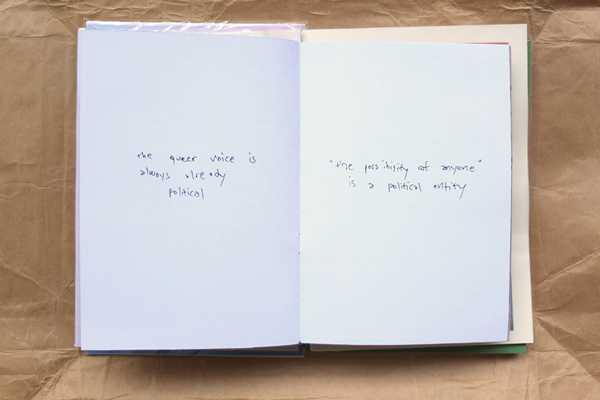 the queer voice is
always already
political
"the possibility of anyone"
is a political entity